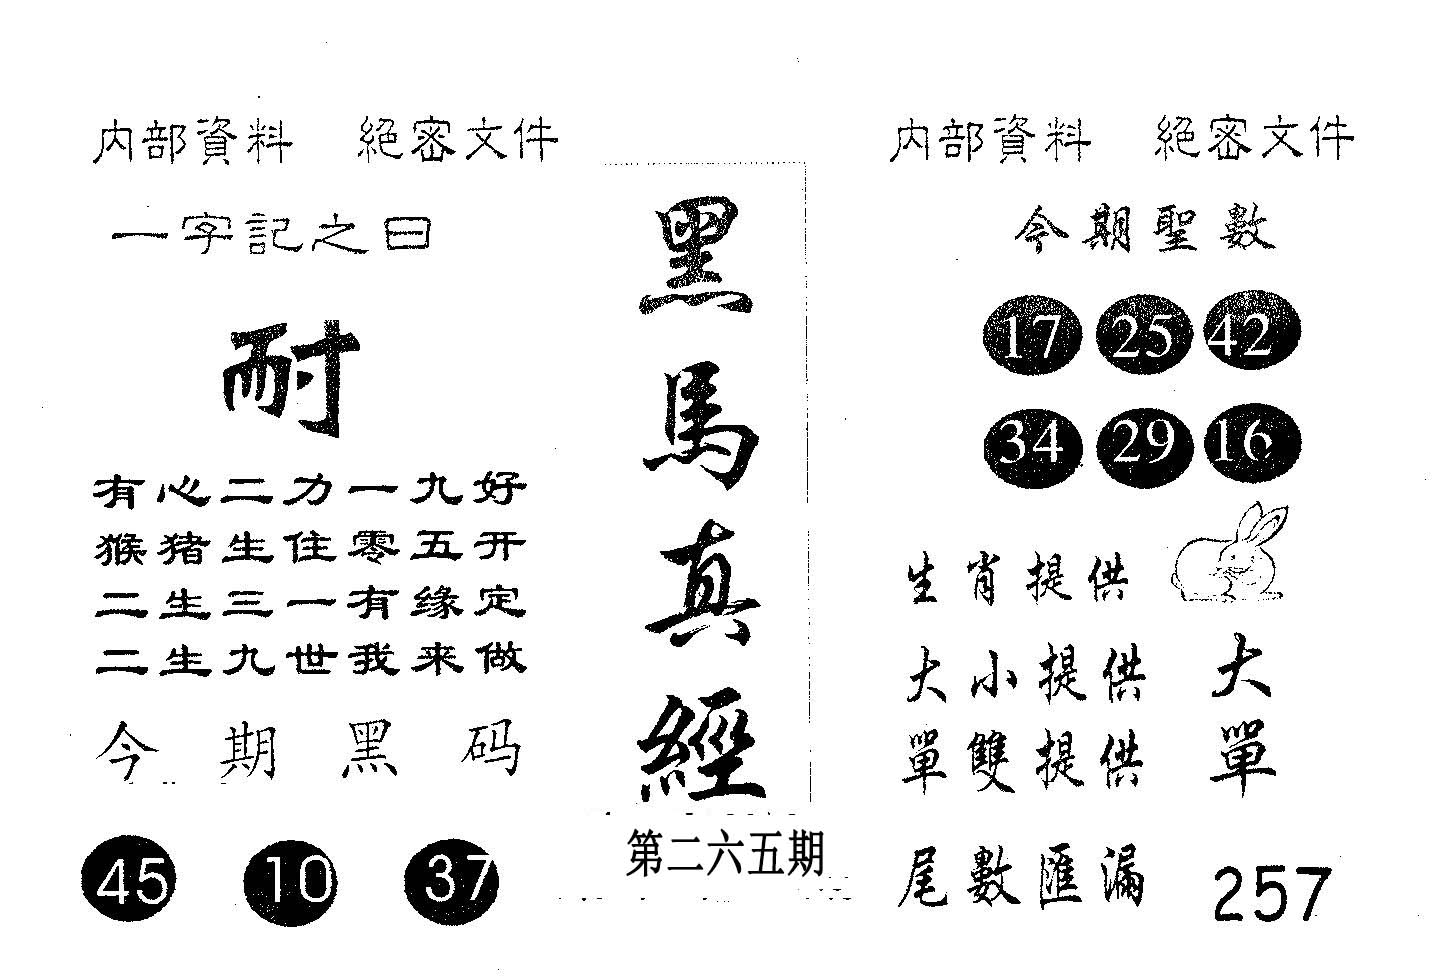 内部資料　絕密文件
一字記之曰
耐
有心二力一九好
猴猪生住零五开
二生三一有缘定
二生九世我来做
今期黑码
45 10 37
黑馬真經
第二六五期
内部資料　絕密文件
今期聖數
17 25 42
34 29 16
生肖提供
大小提供 大
單雙提供 單
尾數匯漏 257